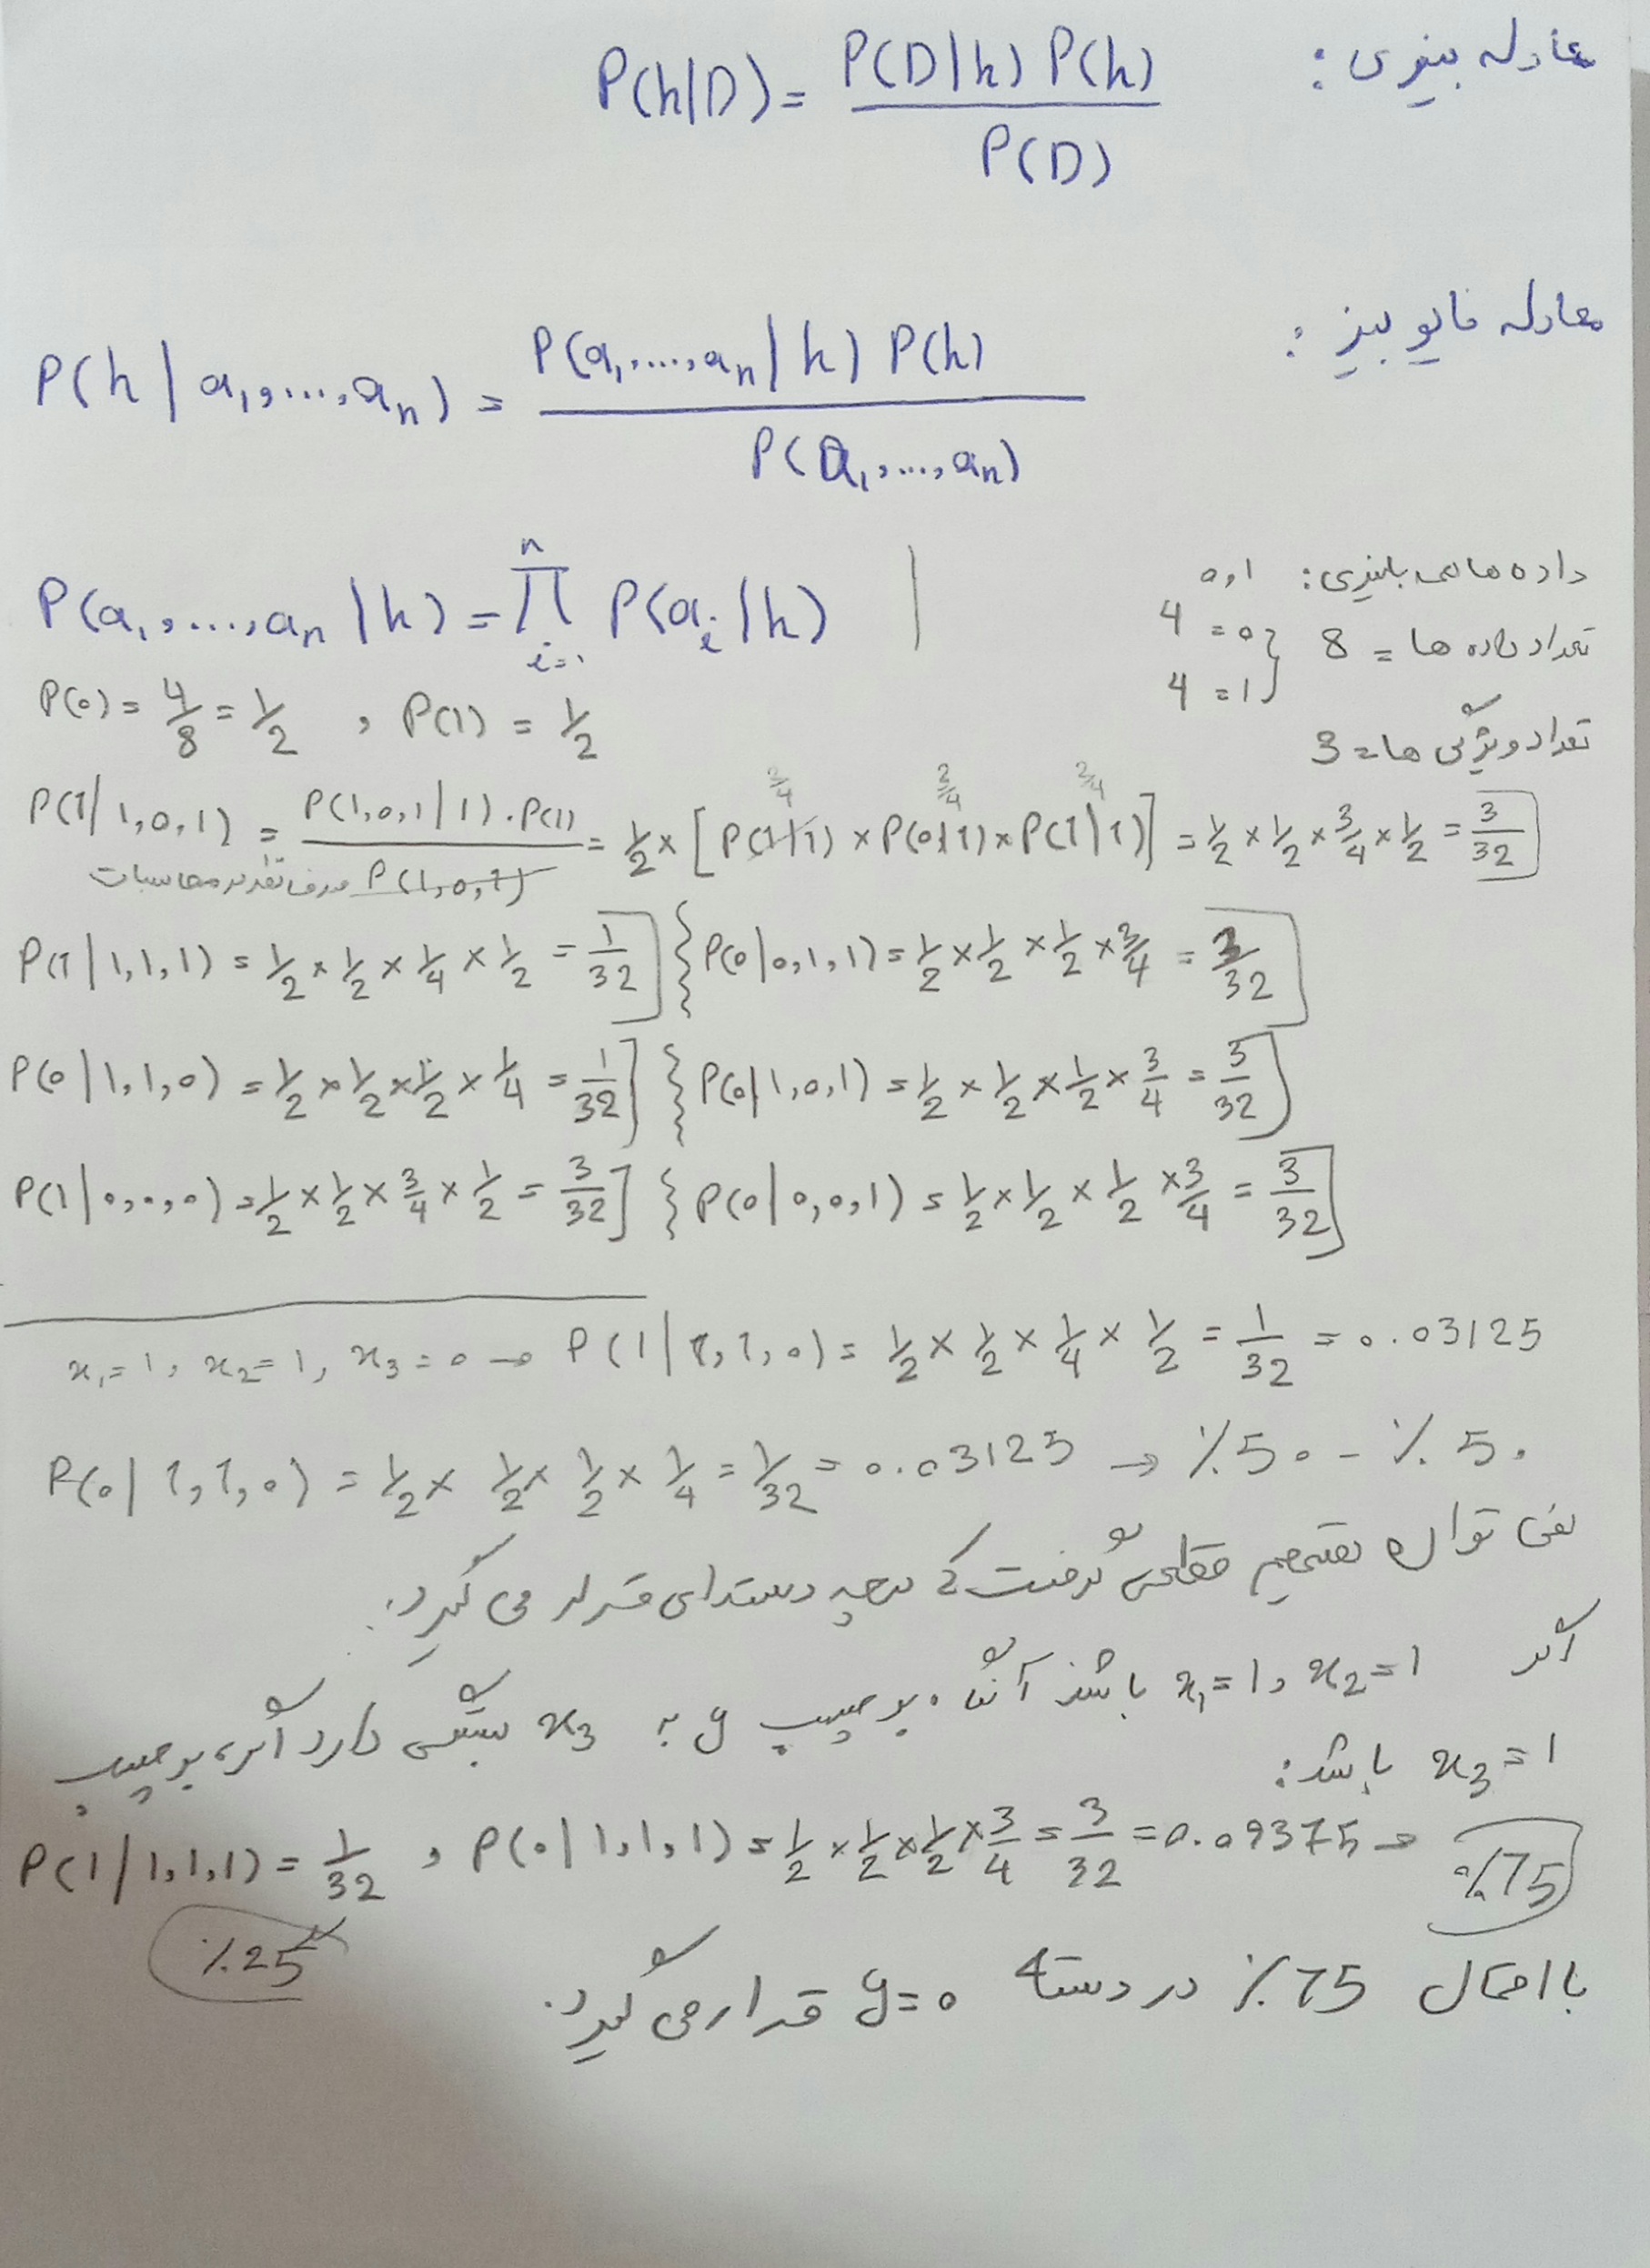 معادله بیزی : P(h|D) = P(D|h) P(h) / P(D)
معادله نایو بیز : P(h | a₁,...,aₙ) = P(a₁,...,aₙ | h) P(h) / P(a₁,...,aₙ)
P(a₁,...,aₙ | h) = ∏ⁿᵢ₌₁ P(aᵢ | h)
داده های باینری : 0,1
تعداد داده ها = 8 { 4 = 0
4 = 1
تعداد ویژگی ها = 3
P(0) = 4/8 = 1/2 , P(1) = 1/2
P(1 | 1,0,1) = P(1,0,1 | 1) . P(1) / P(1,0,1) = 1/2 × [P(1|1) × P(0|1) × P(1|1)] = 1/2 × 1/2 × 3/4 × 1/2 = 3/32
2/4 3/4 2/4
محاسبات
P(1 | 1,1,1) = 1/2 × 1/2 × 1/4 × 1/2 = 1/32 } { P(0 | 0,1,1) = 1/2 × 1/2 × 1/2 × 3/4 = 3/32
P(0 | 1,1,0) = 1/2 × 1/2 × 1/2 × 1/4 = 1/32 } { P(0 | 1,0,1) = 1/2 × 1/2 × 1/2 × 3/4 = 3/32
P(1 | 0,0,0) = 1/2 × 1/2 × 3/4 × 1/2 = 3/32 } { P(0 | 0,0,1) = 1/2 × 1/2 × 1/2 × 3/4 = 3/32
x₁ = 1, x₂ = 1, x₃ = 0 → P(1 | 1,1,0) = 1/2 × 1/2 × 1/4 × 1/2 = 1/32 = 0.03125
P(0 | 1,1,0) = 1/2 × 1/2 × 1/2 × 1/4 = 1/32 = 0.03125 → %50 - %50
نمی توان تصمیم قطعی گرفت که در چه دسته ای قرار می گیرد.
اگر x₁ = 1, x₂ = 1 باشد آنگاه برچسب y به x₃ بستگی دارد اگر برچسب
x₃ = 1 باشد :
P(1 | 1,1,1) = 1/32 , P(0 | 1,1,1) = 1/2 × 1/2 × 1/2 × 3/4 = 3/32 = 0.09375 → %75
%25
با احتمال 75% در دسته y = 0 قرار می گیرد.